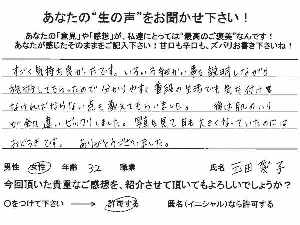 あなたの“生の声”をお聞かせ下さい！
あなたの「意見」や「感想」が、私達にとっては“最高のご褒美”なんです！
あなたが感じたそのままをご記入下さい！甘口も辛口も、ズバリお書き下さいね！
すごく気持ち良かったです。いろいろ細かい事も説明しながら
施術してもらったので分かりやすく普段の生活でも気を付け
なければならない点も教えてもらいました。 後は肌のハリ
が全然違いビックリしました。写真も見て目も大きくなっていたのには
おどろきです。ありがとうございました。
男性 女性 年齢 32 職業 氏名
今回頂いた貴重なご感想を、紹介させて頂いてもよろしいでしょうか？
○をつけて下さい → 許可する 匿名（イニシャル）なら許可する